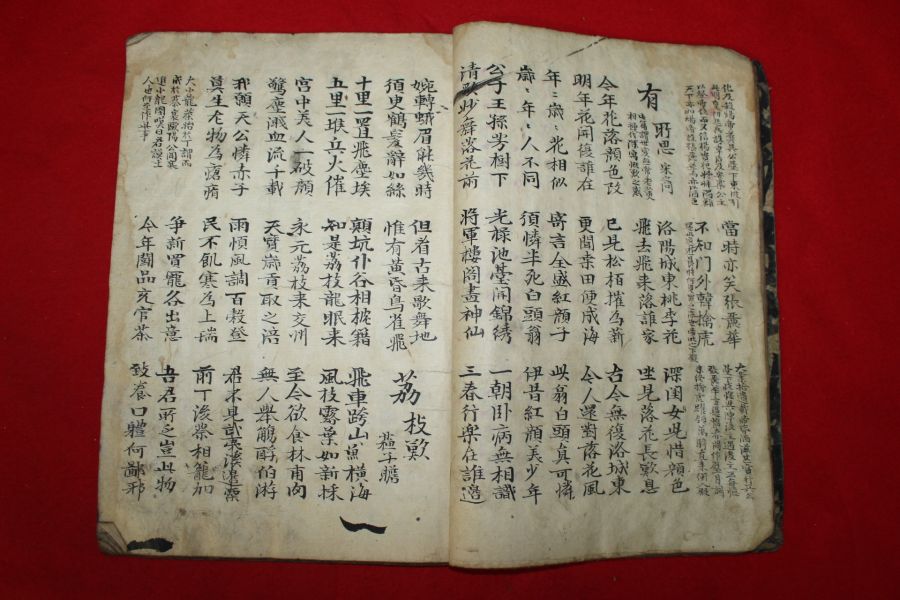 當時亦笑張麗華
不知門外韓擒虎
有所思
宋之問
洛陽城東桃李花
飛去飛來落誰家
深閨女児惜顔色
坐見落花長歎息
今年花落顔色改
明年花開復誰在
已見松栢摧為薪
更聞桑田便成海
古今無復洛城東
今人還對落花風
年〻歲〻花相似
歲〻年〻人不同
寄言全盛紅顔子
須憐半死白頭翁
此翁白頭真可憐
伊昔紅顔美少年
公子王孫芳樹下
清歌妙舞落花前
光祿池臺開錦綉
將軍樓閣畵神仙
一朝卧病無相識
三春行樂在誰邊
婉轉蛾眉能幾時
須臾鶴髮辭如絲
但看古來歌舞地
惟有黃昏鳥雀飛
荔枝歎
蘇子瞻
十里一置飛塵埃
五里一堠兵火催
顛坑仆谷相枕籍
知是荔枝龍眼來
飛車跨山鶻橫海
風枝露葉如新採
宮中美人一破顔
驚塵濺血流千載
永元荔枝來交州
天寶歲貢取之涪
至今欲食林甫肉
無人舉觴酹伯游
我願天公憐赤子
莫生尤物為瘡痏
雨順風調百穀登
民不飢寒為上瑞
君不見武夷溪邊粟
前丁後蔡相籠加
大小龍茶始於丁謂而
成於蔡襄歐陽公聞襄
進小龍團嘆曰君謨士
人也何至作此事
爭新買寵各出意
今年鬪品充官茶
吾君所乏豈此物
致養口體何鄙邪